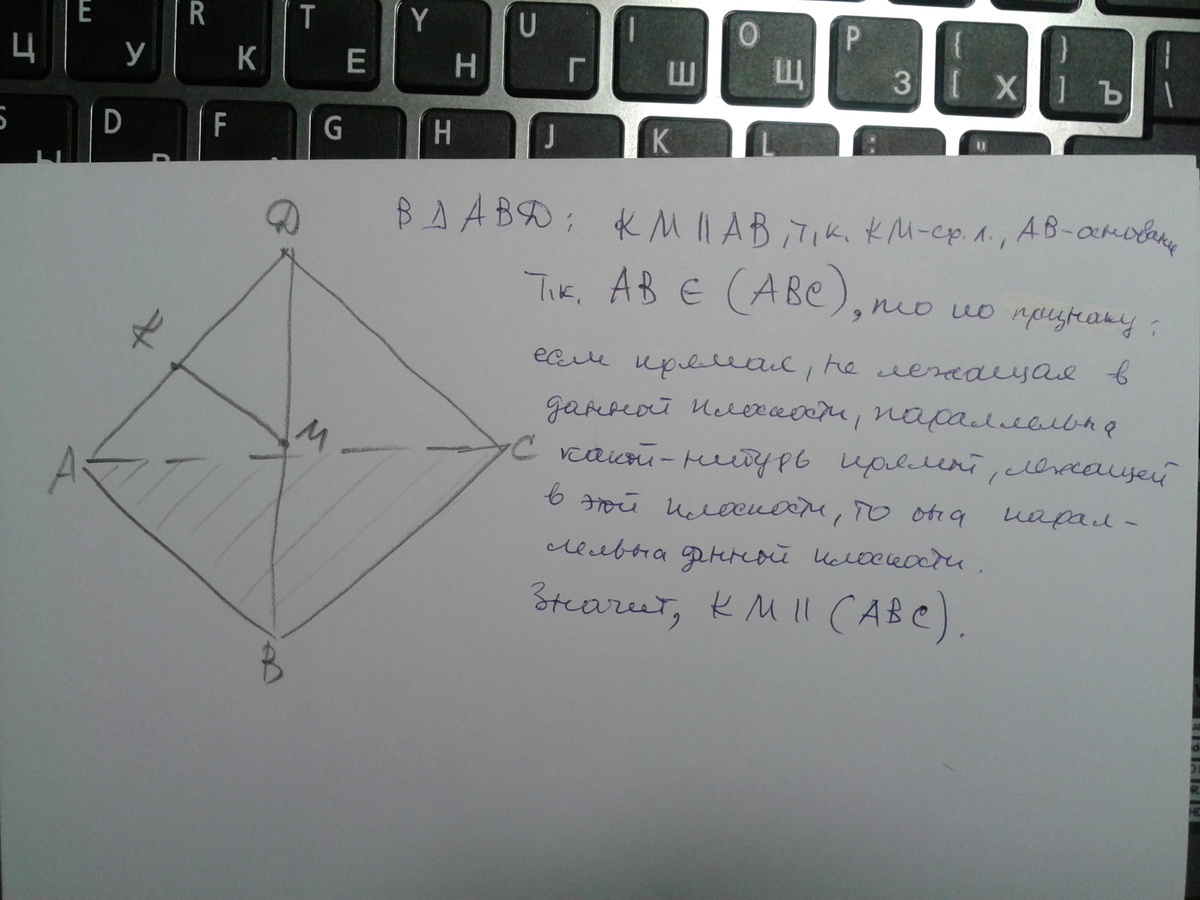 E R T Y U I O P { }
Ц У К Е Н Г Ш Щ З [ Х ] Ъ \
S D F G H J K L : "
Д
К
М
А
С
В
В Δ АВД; КМ || АВ, т.к. КМ-ср.л., АВ-основание
Т.к. АВ ∈ (АВС), то по признаку:
если прямая, не лежащая в
данной плоскости, параллельна
какой-нибудь прямой, лежащей
в этой плоскости, то она парал-
лельна данной плоскости.
Значит, КМ || (АВС).